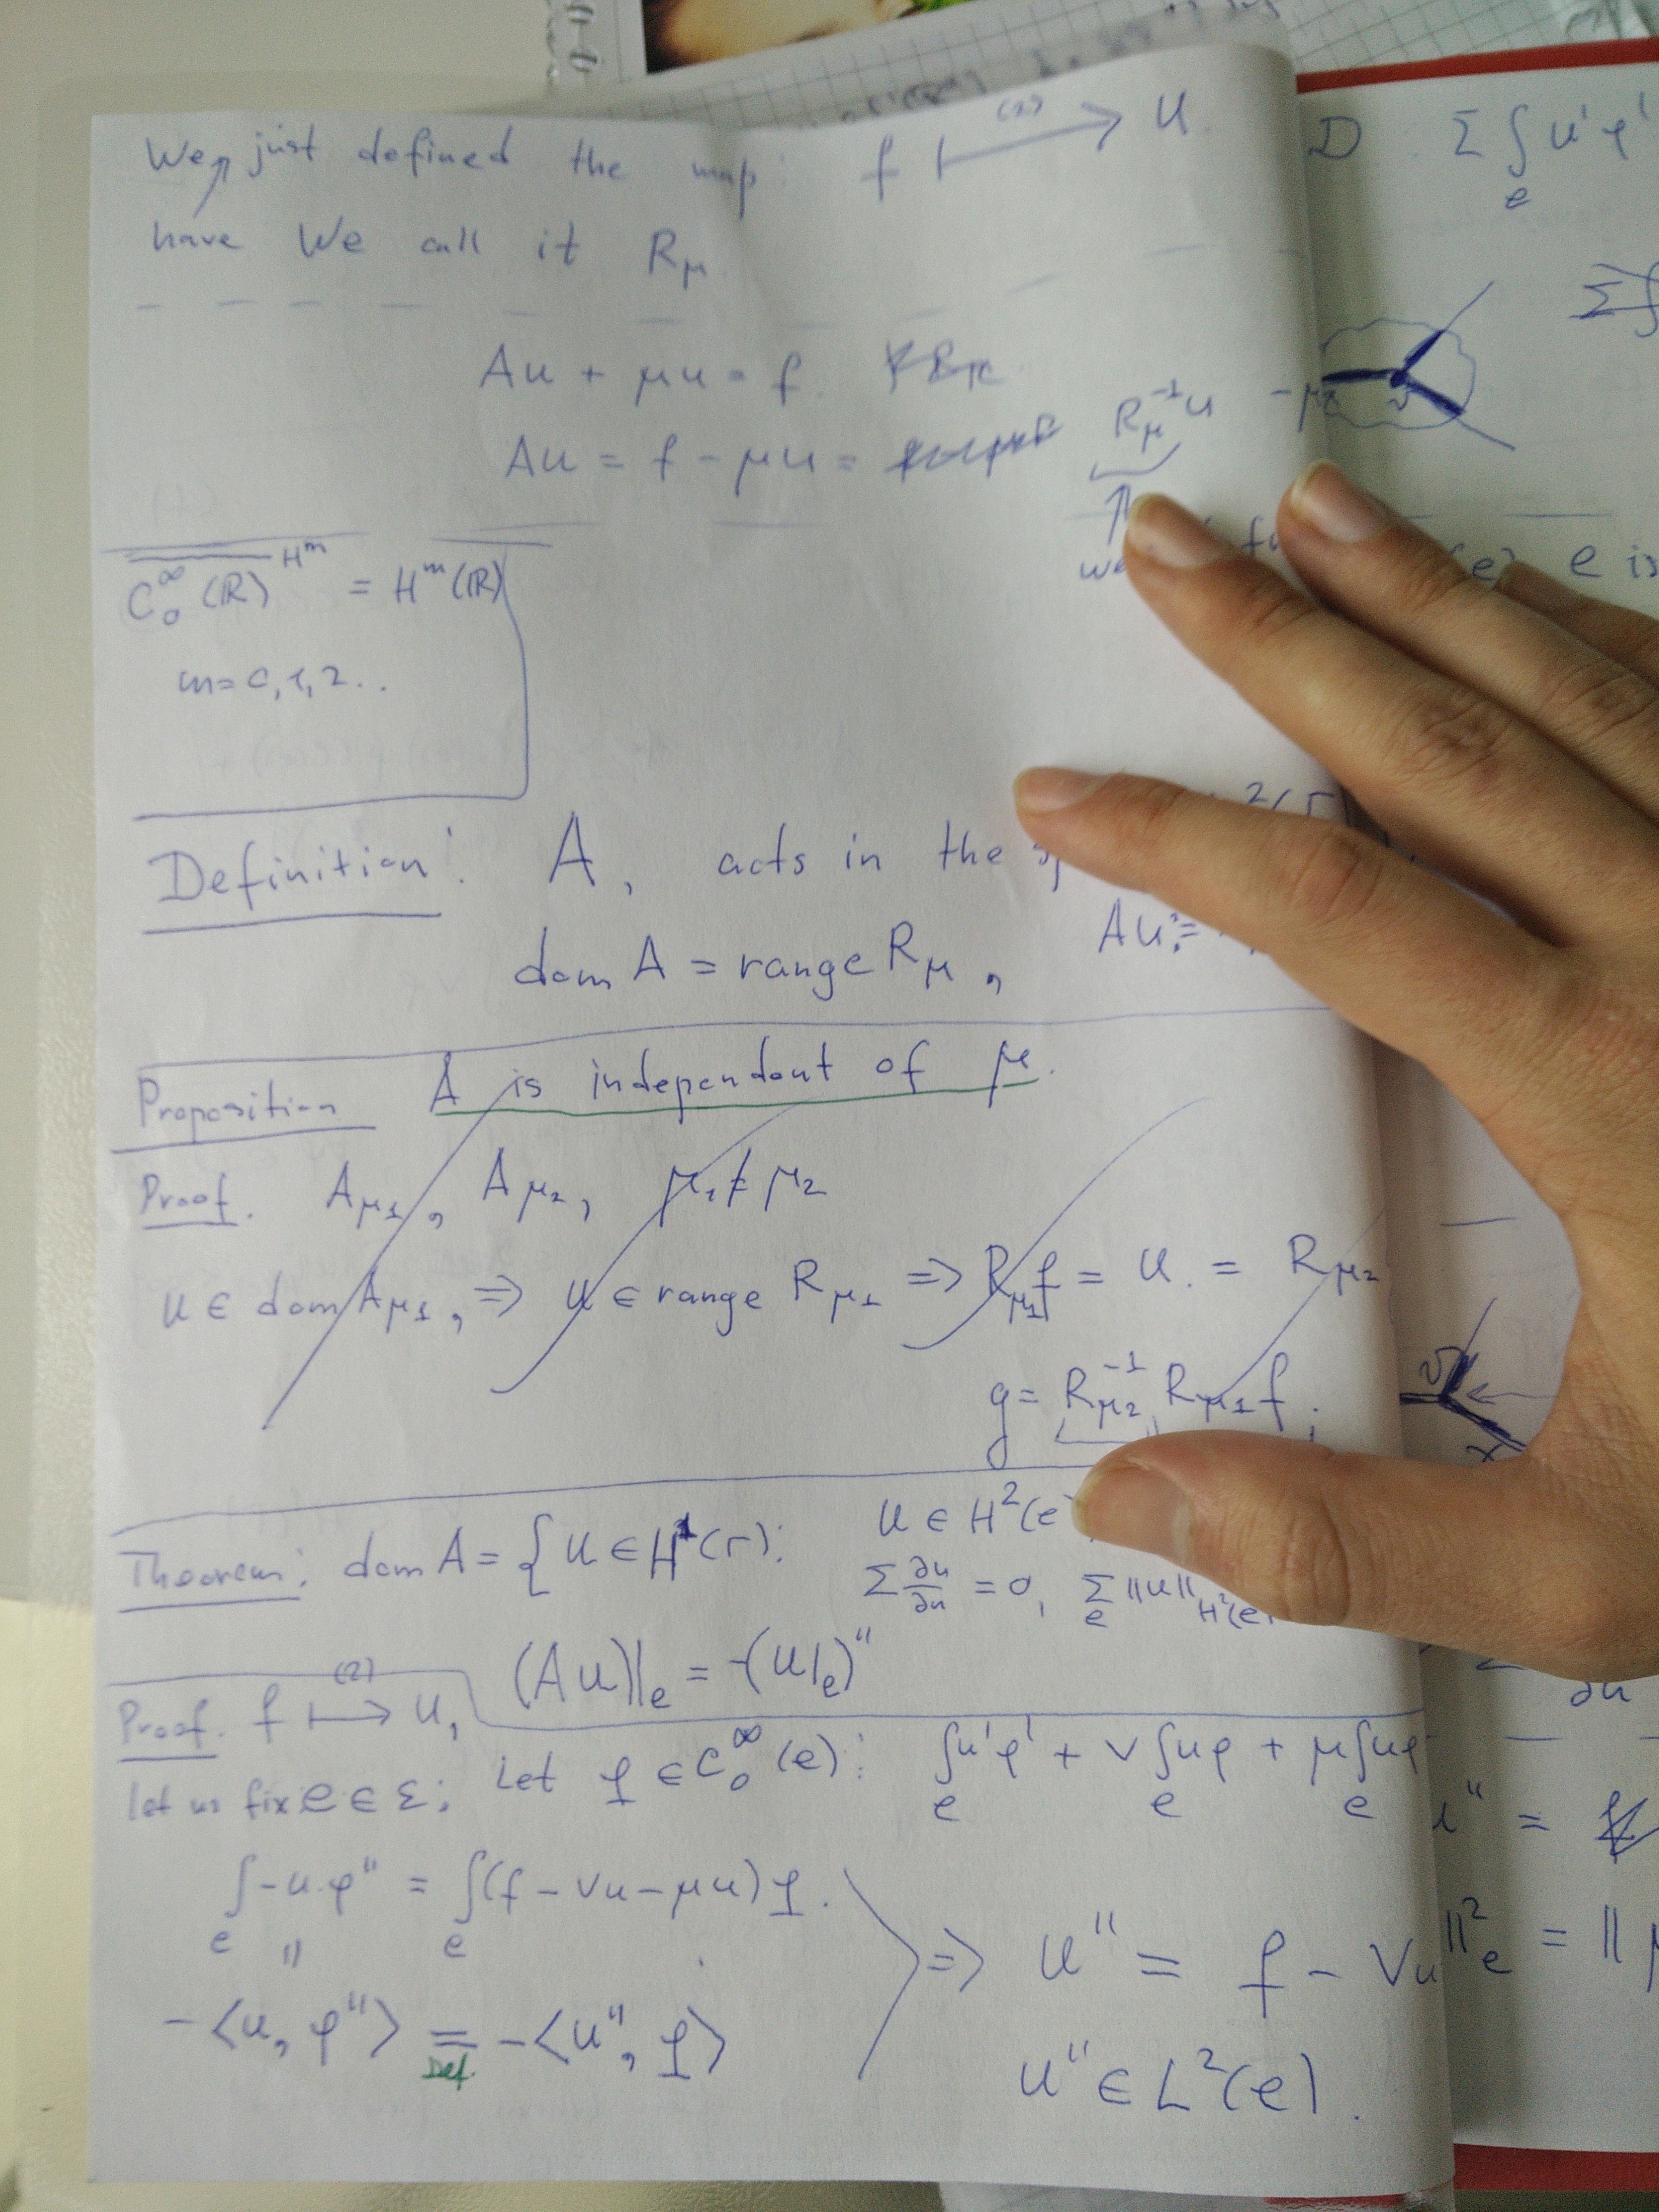 We just defined the map: f ⟼ u.
(2)
have We call it R_μ
Au + μu = f.
Au = f - μu = R_μ^{-1}u - μ
we
C_0^∞(ℝ)^{H^m} = H^m(ℝ)
m=0,1,2..
Definition: A, acts in the
dom A = range R_μ, Au:=
Proposition A is independent of μ.
Proof. A_{μ1}, A_{μ2}, μ_1 ≠ μ_2
u ∈ dom A_{μ1}, ⇒ u ∈ range R_{μ1} ⇒ R_{μ1}f = u. = R_{μ2}
g = R_{μ2}^{-1} R_{μ1} f;
Theorem: dom A = { u ∈ H^1(Γ): u ∈ H^2(e)
Σ ∂u/∂n = 0, Σ_e ||u||_{H^2(e)
(Au)|_e = -(u|_e)''
Proof. f ⟼ u,
(2)
let us fix e ∈ ℰ; Let φ ∈ C_0^∞(e): ∫_e u'φ' + V∫_e uφ + μ∫_e uφ
∫_e -u φ'' = ∫_e (f - Vu - μu)φ.
"
-⟨u, φ''⟩ = -⟨u'', φ⟩
Def.
⇒ u'' = f - Vu
u'' ∈ L^2(e).
D Σ ∫_e u'φ'
Σ∫
v
e is
v
∂u
u'' =
||^2_e = ||μ